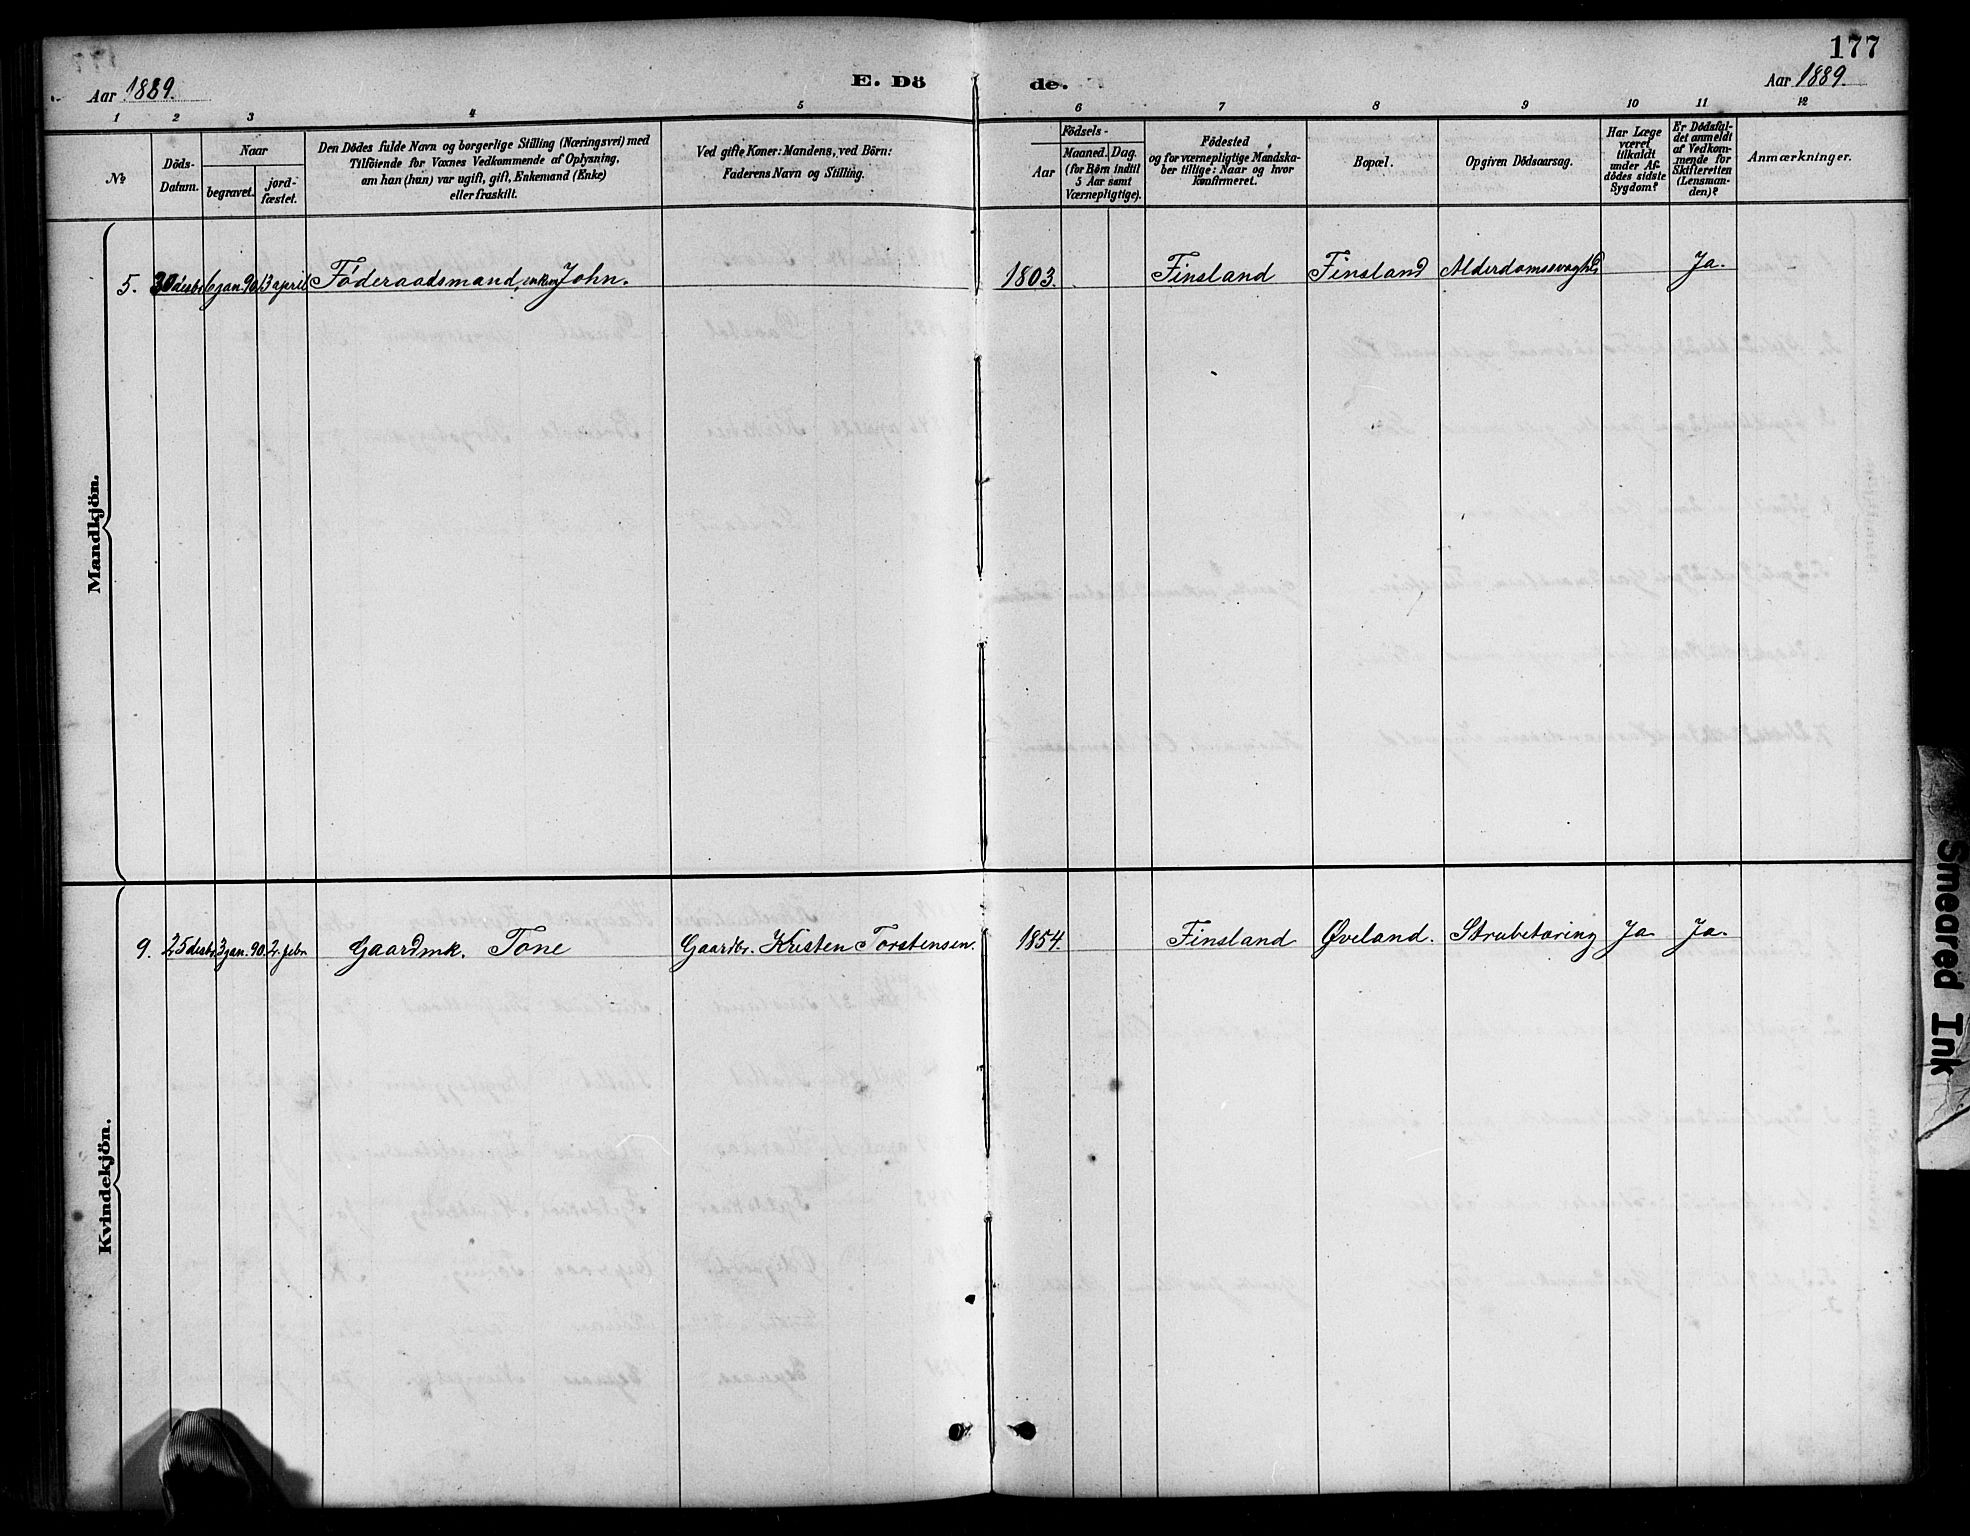 177
Aar 1889.
E. Dö de.
Aar 1889.
1 2 3 4 5 6 7 8 9 10 11 12
№
Döds-
Datum.
Naar
begravet.
jord-
fæstet.
Den Dödes fulde Navn og borgerlige Stilling (Næringsvei) med
Tilföiende for Voxnes Vedkommende af Oplysning,
om han (hun) var ugift, gift, Enkemand (Enke)
eller fraskilt.
Ved gifte Koner: Mandens, ved Börn:
Faderens Navn og Stilling.
Födsels-
Aar
Maaned. Dag.
(for Børn indtil
5 Aar samt
Værnepligtige).
Födested
og for værnepligtige Mandska-
ber tillige: Naar og hvor
konfirmeret.
Bopæl.
Opgiven Dödsaarsag.
Har Læge
været
tilkaldt
under Af-
dödes sidste
Sygdom?
Er Dödsfal-
det anmeldt
af Vedkom-
mende for
Skifteretten
(Lensman-
den)?
Anmærkninger.
Mandkjön.
5. 30 desbr 6 jan. 90. 13 april Föderaadsmand, enkem John. 1803. Finsland Finsland Alderdomssvaghd Ja.
Kvindekjön.
9. 25 desbr. 3 jan. 90. 2. febr. Gaardmk. Tone Gaardbr. Kristen Torstensen. 1854. Finsland Øveland. Strubetæring Ja Ja.
Smeared Ink